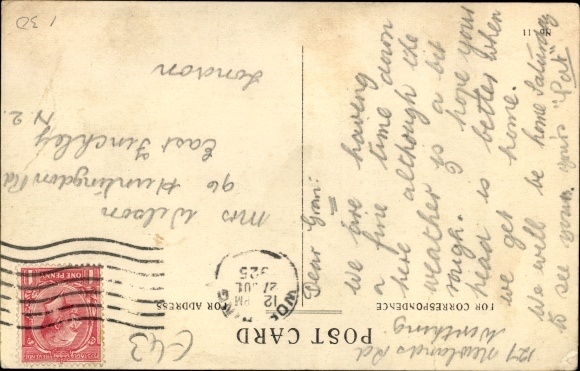 POST CARD
FOR CORRESPONDENCE
FOR ADDRESS
127 Newlands Rd
Worthing
Dear Gran:
We are having
a fine time down
here although the
weather is a bit
rough. I hope your
head is better when
we get home.
We will be home Saturday
to see you. yours "Pat"
Mrs Wilson
96 Huntingdon Rd
East Finchley
N.2.
London
12 PM
27 JUL
925
ONE PENNY
C43
1 3D